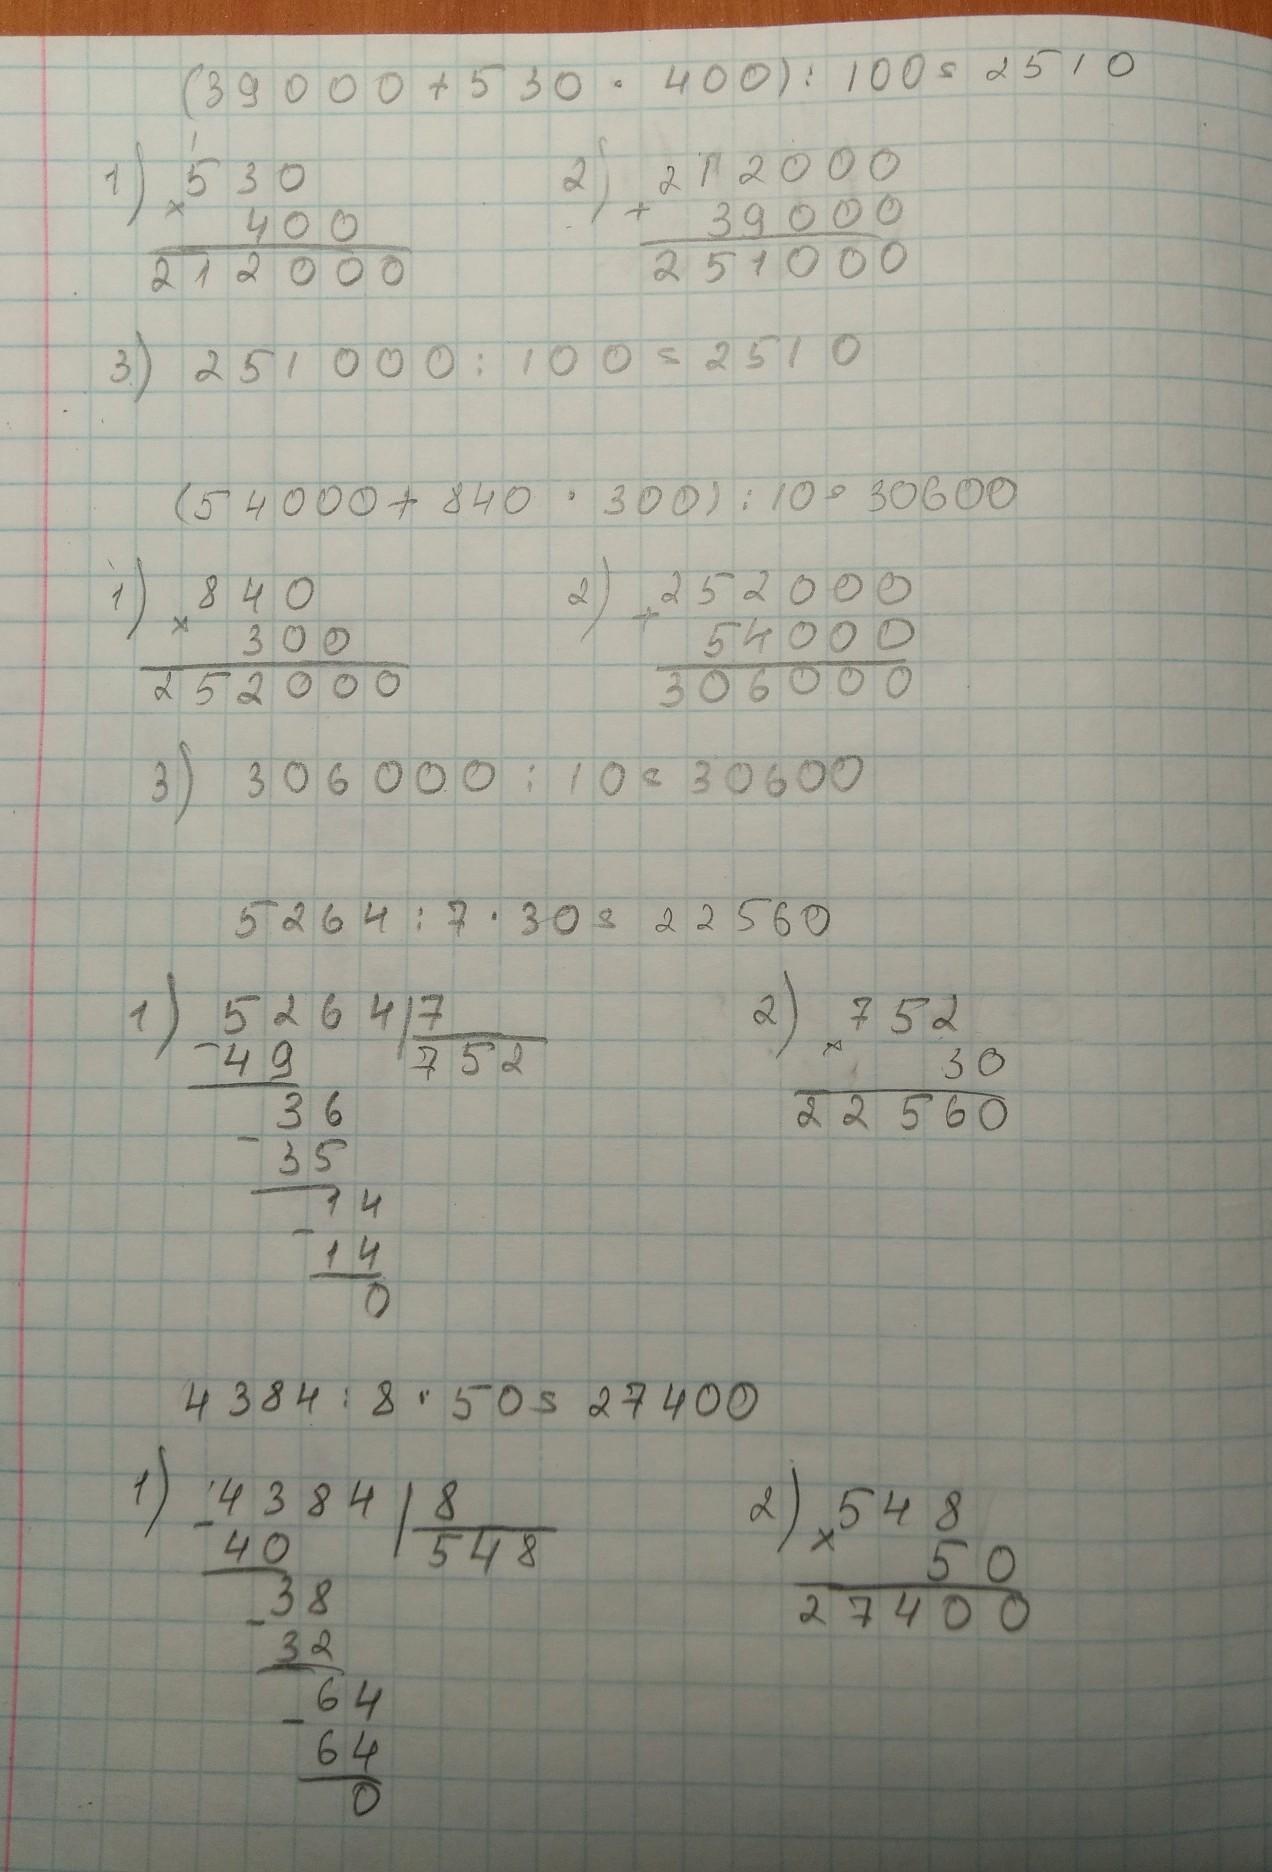 (39000+530·400):100=2510
1) 530 2) 212000
× 400 + 39000
212000 251000
3) 251000:100=2510
(54000+840·300):10=30600
1) 840 2) 252000
× 300 + 54000
252000 306000
3) 306000:10=30600
5264:7·30=22560
1) 5264|7 2) 752
-49 752 × 30
36 22560
-35
14
-14
0
4384:8·50=27400
1) -4384|8 2) 548
40 548 × 50
-38 27400
32
-64
64
0